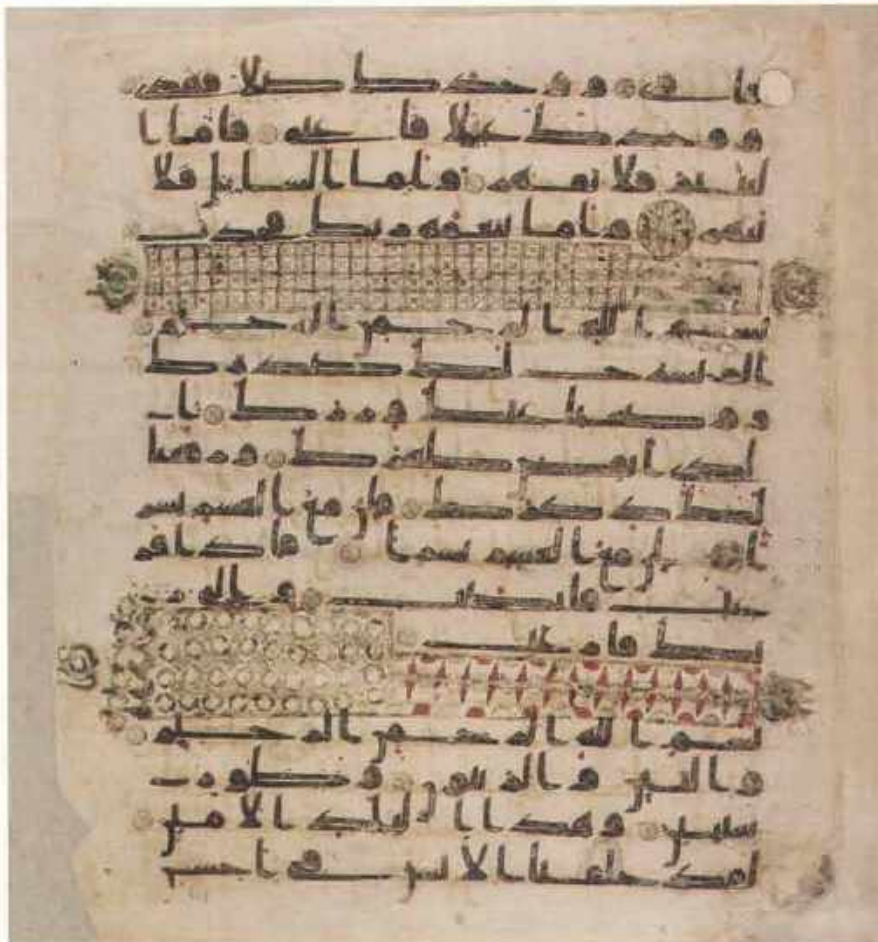 فاوى ووجدك ضلا فهدى
ووجدك عيلا فاغنى فاما ا
ليتيم فلا تقهر واما السايل فلا
تنهر واما بنعمة ربك فحدث
بسم الله الرحمن الرحيم
الم نشرح لك صدرك
ووضعنا عنك وزرك ا
لذى انقض ظهرك ورفعنا
لك ذكرك فان مع العسر يسر
ا ان مع العسر يسرا فاذا فر
غت فانصب والى ر
بك فارغب
بسم الله الرحمن الرحيم
والتين والزيتون وطور
سينين وهذا البلد الامين
لقد خلقنا الانسن فى احسن